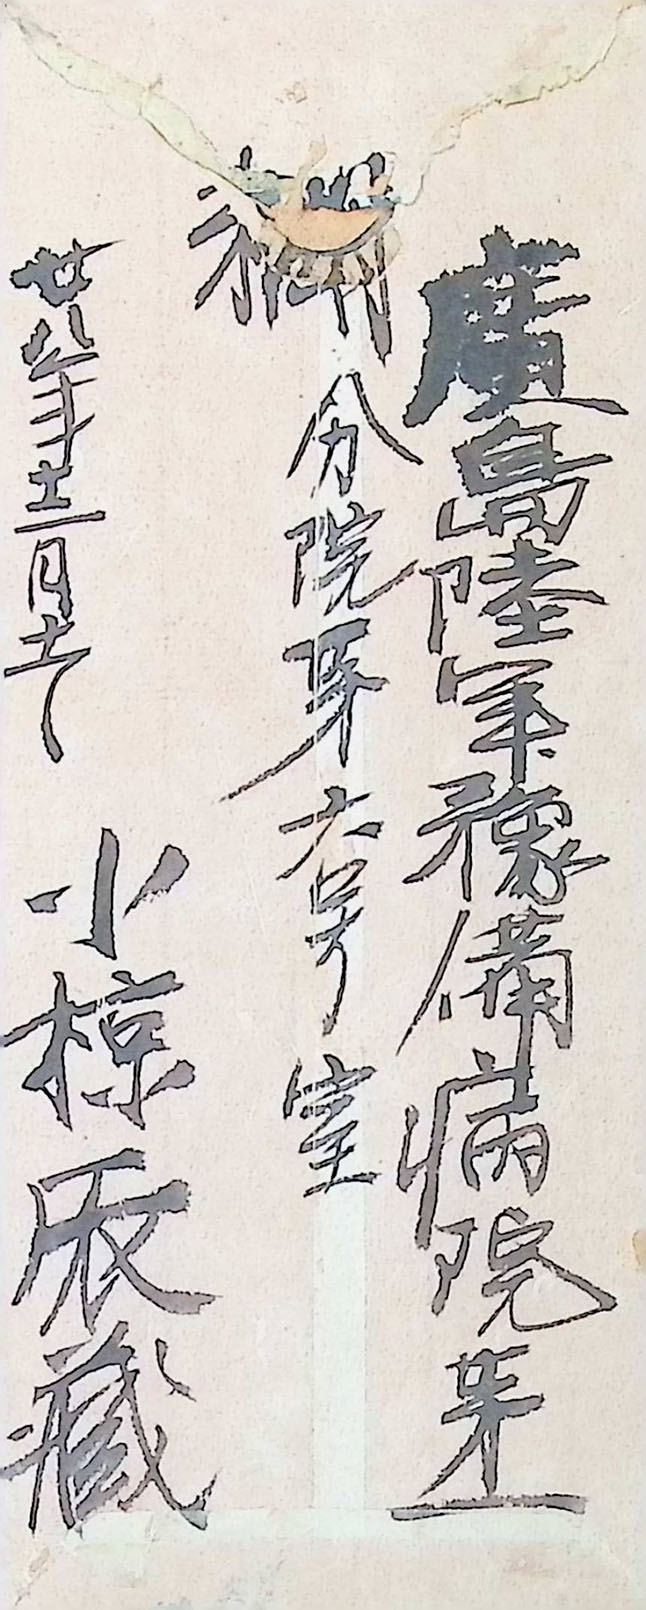 廣島陸軍豫備病院第一
分院第六号室
廿八年十二月十一
小椋辰藏